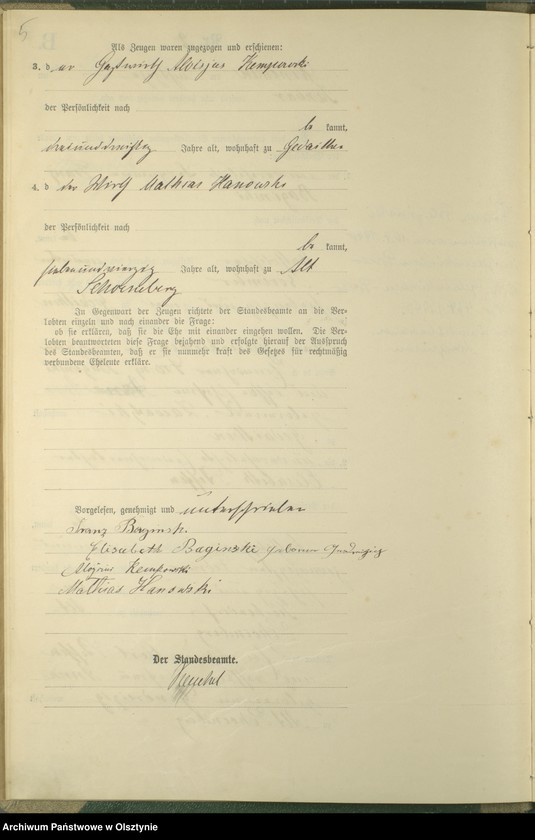 5
Als Zeugen waren zugezogen und erschienen:
3. der Gastwirth Aloisjus Kempowski
der Persönlichkeit nach
be kannt,
dreiunddreißig Jahre alt, wohnhaft zu Gedaithen
4. d der Wirth Mathias Hanowski
der Persönlichkeit nach
be kannt,
siebenundvierzig Jahre alt, wohnhaft zu Alt
Schoeneberg
In Gegenwart der Zeugen richtete der Standesbeamte an die Ver-
lobten einzeln und nach einander die Frage:
ob sie erklären, daß sie die Ehe mit einander eingehen wollen. Die Ver-
lobten beantworteten diese Frage bejahend und erfolgte hierauf der Ausspruch
des Standesbeamten, daß er sie nunmehr kraft des Gesetzes für rechtmäßig
verbundene Eheleute erkläre.
Vorgelesen, genehmigt und unterschrieben
Franz Baginski
Elisabeth Baginski geborene
Aloisius Kempowski
Mathias Hanowski
Der Standesbeamte.
Archiwum Państwowe w Olsztynie